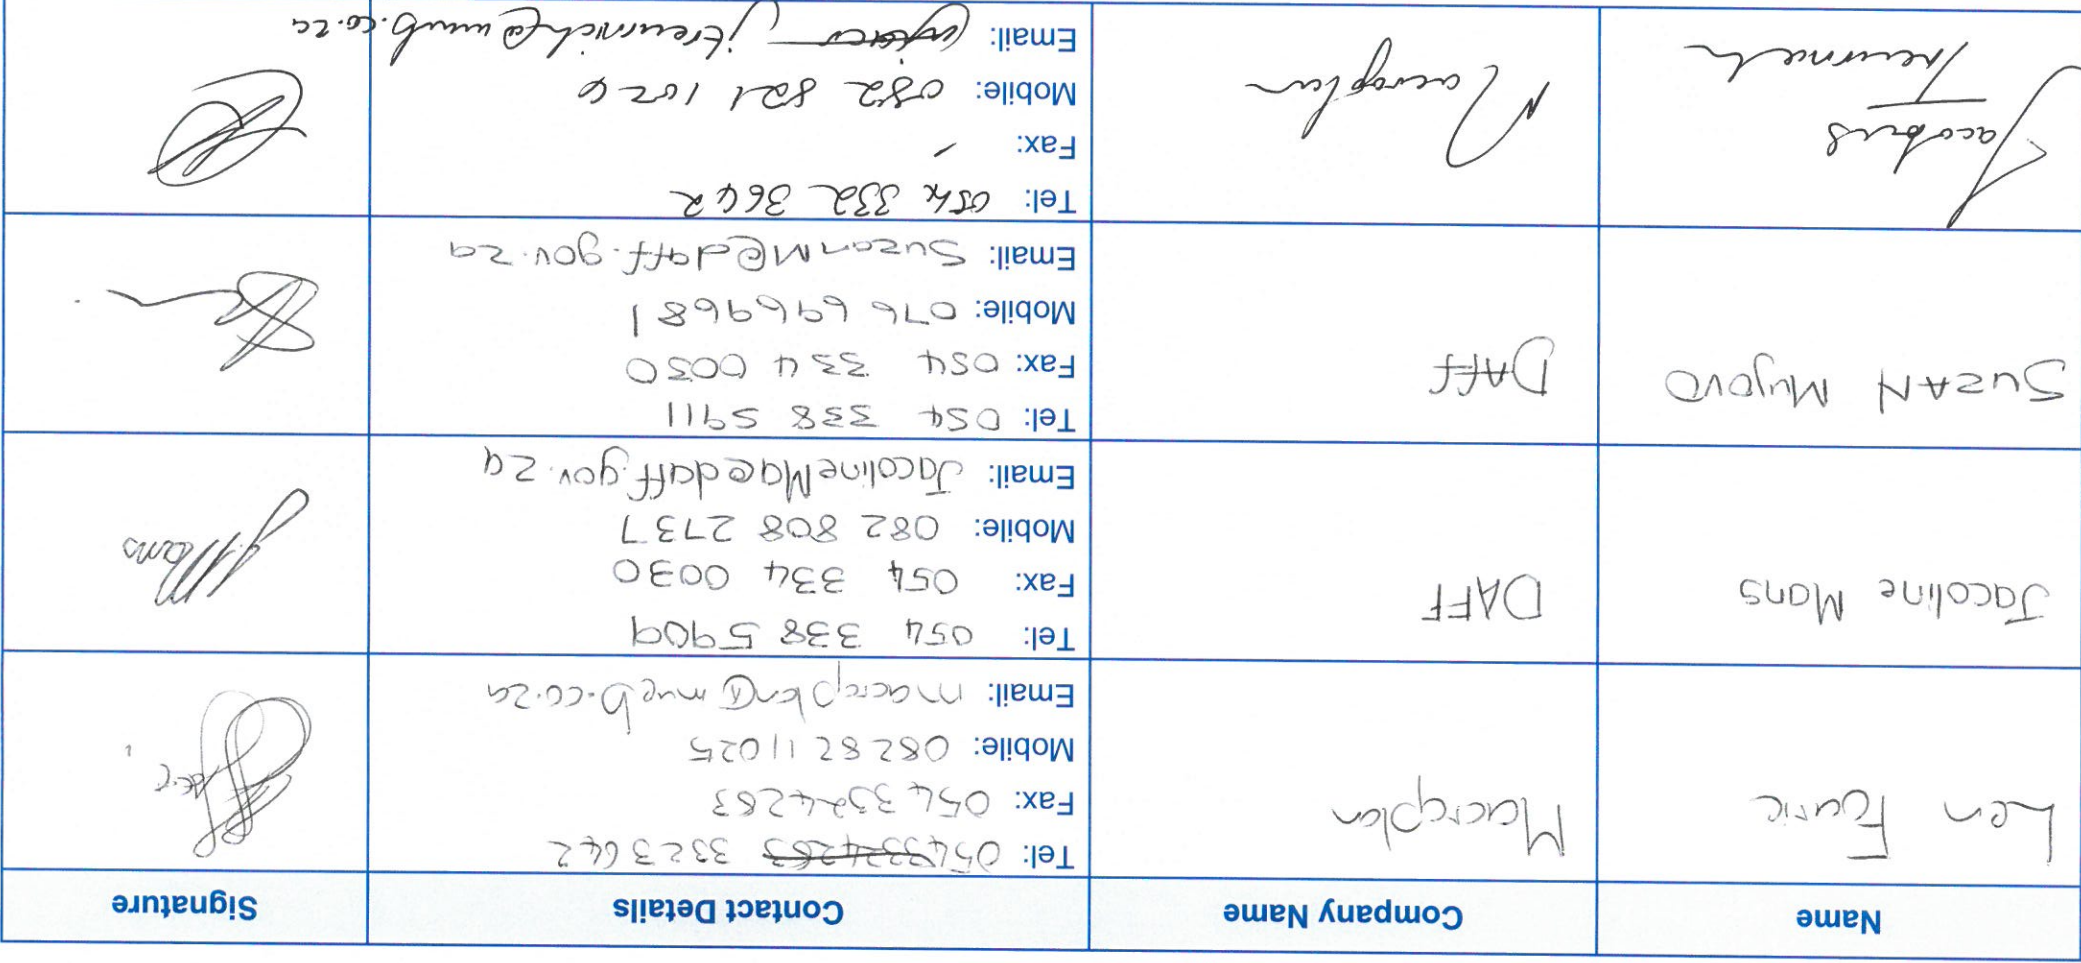 Name Company Name Contact Details Signature
Len Fourie Macroplan
Tel: 054 3323642
Fax: 054 3324283
Mobile: 082 82 11025
Email: macroplan@mweb.co.za
Jacoline Mans DAFF
Tel: 054 338 5909
Fax: 054 334 0030
Mobile: 082 808 2737
Email: JacolineMa@daff.gov.za
JMans
SUZAN Mujovo DAFF
Tel: 054 338 5911
Fax: 054 334 0030
Mobile: 076 6969681
Email: SuzanM@daff.gov.za
Jacobus Macroplan
Tel: 054 332 3642
Fax: -
Mobile: 082 821 1024
Email: @mweb.co.za